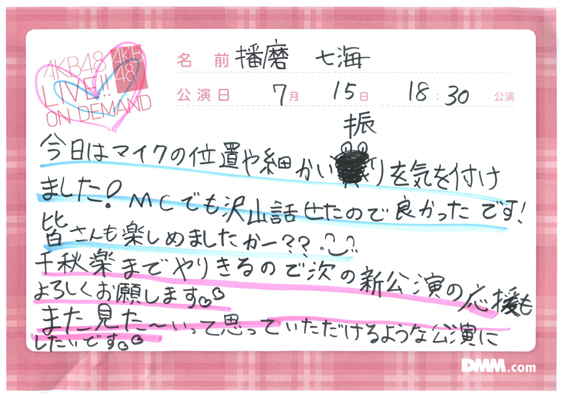 AKB48
LIVE!!
ON DEMAND
AKB
48
名 前 播磨 七海
公演日 7月 15日 18:30 公演
振
今日はマイクの位置や細かいりを気を付け
ました!MCでも沢山話せたので良かったです!
皆さんも楽しめましたかー??
千秋楽までやりきるので次の新公演の応援も
よろしくお願します
また見た〜いって思っていただけるような公演に
したいです。
DMM.com